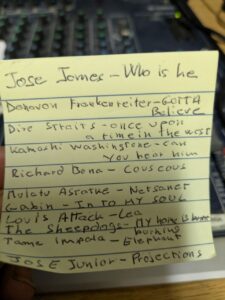 Jose James - Who is he
Donovon Frankenreiter - GOTTA
Believe
Dire Straits - once upon
a time in the west
Kamashi Washington - can
You hear him
Richard Bona - Couscous
Mulatu Astatke - Netsanet
Gabin - In to MY SOUL
Louis Attack - Lea
The Sheepdogs - My house is
burning
Tame Impala - Elephant
JOSE Junior - Projections